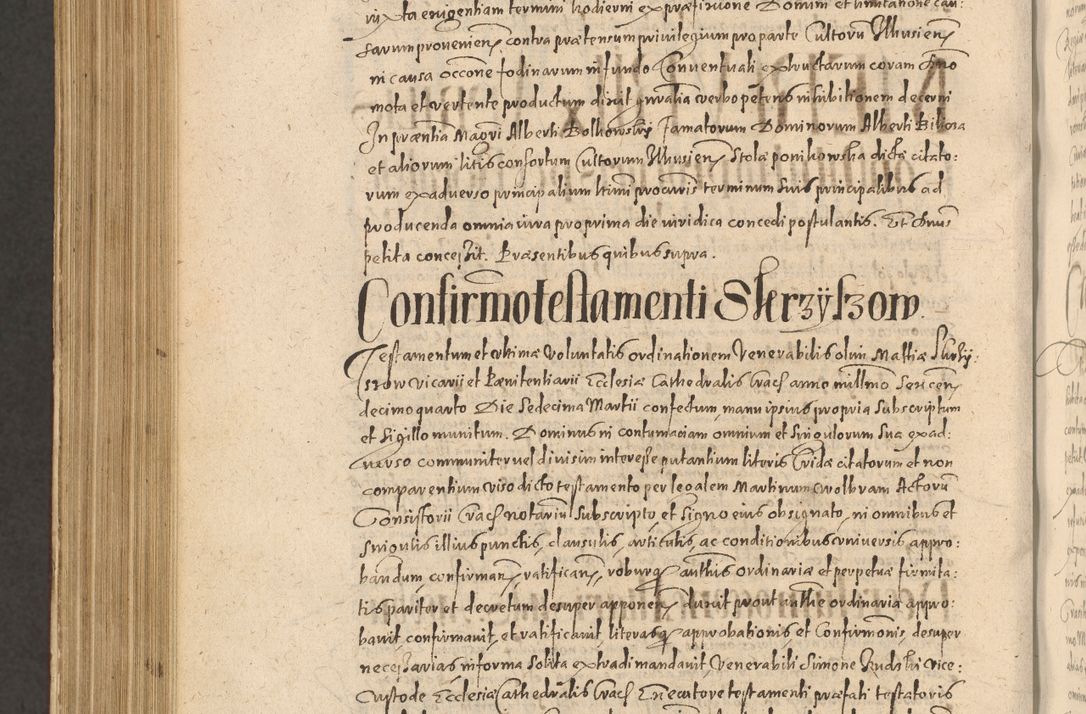 iuxta exigentiam termini hodierni ex præfixione Domini et limitatione cau:
sarum provenien contra prætensum privilegium pro parte Cultorum Ilkusien
in causa occõne fodinarum in fundo Conventuali extructarum coram Dno
mota et vertente productum dixit gnralia verbo petens inhibitionem decerni
In prœntia Magri Alberti Bolkowsky Famatorum Dominorum Alberti Biliora
et aliorum litis consortum Cultorum Ilkusien Stolæ ponikowska dictæ citato:
rum ex adverso principalium ltimi procuris terminum suis principalibus ad
producenda omnia iura pro prima die iuridica concedi postulantis. Et Dnus
petita concessit. Præsentibus quibus supra.
Confirmo testamenti Skrzÿszow.
Testamentum et ultimæ voluntatis ordinationem Venerabilis olim Mathiæ Skrzÿ:
szow vicarii et Pœnitentiarii Ecclesiæ Cathedralis Crac anno millmo Sexcen
decimo quarto Die Sedecima Martii confectum, manu ipsius propria subscriptum
et Sigillo munitum. Dominus in contumaciam omnium et singulorum sua exad:
verso communiter vel divisim interesse putantium literis Cridæ citatorum et non
comparentium viso dicto testamento per legalem Martinum Wolbram Actorũ
Consistorii Crac notarium subscripto, et signo eius obsignato, in omnibus et
singulis illius punctis, clausulis, articulis, ac conditionibus universis appro:
bandum, confirman, ratifican, roburq authis ordinariæ et perpetuæ firmita:
tis pariter et decretum desuper apponen duxit prout authte ordinaria appro:
bavit confirmavit, et ratificavit literasq approbationis et Confirmonis, desuper
necessarias in forma solita extradi mandavit, Venerabili Simone Rudski vice:
Custode Ecclesiæ Cathedralis Crac Executore testamenti præfati testatoris